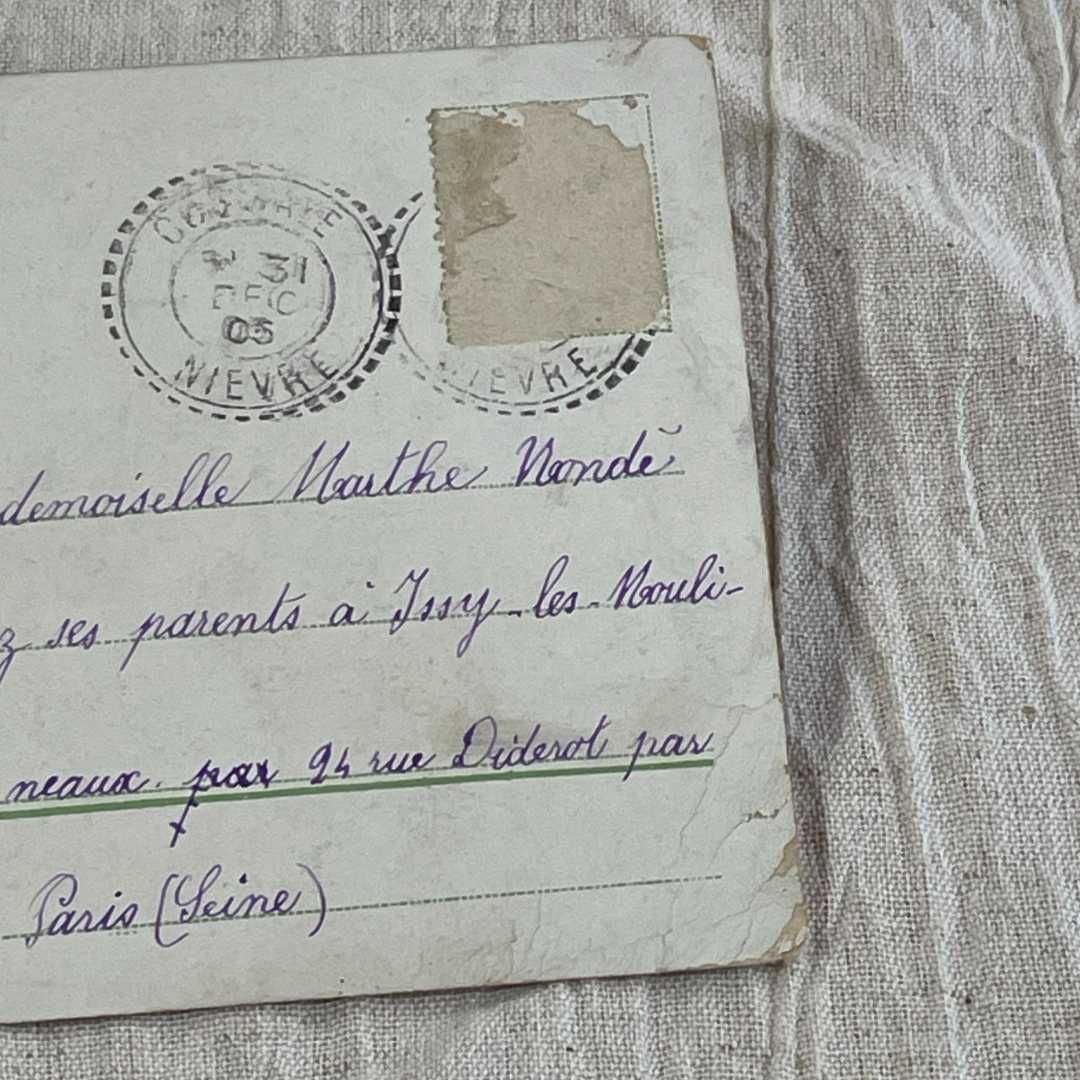 31
DEC
05
NIEVRE
NIEVRE
demoiselle Marthe Mondé
z ses parents à Issy-les-Mouli-
neaux. par 24 rue Diderot par
Paris (Seine)